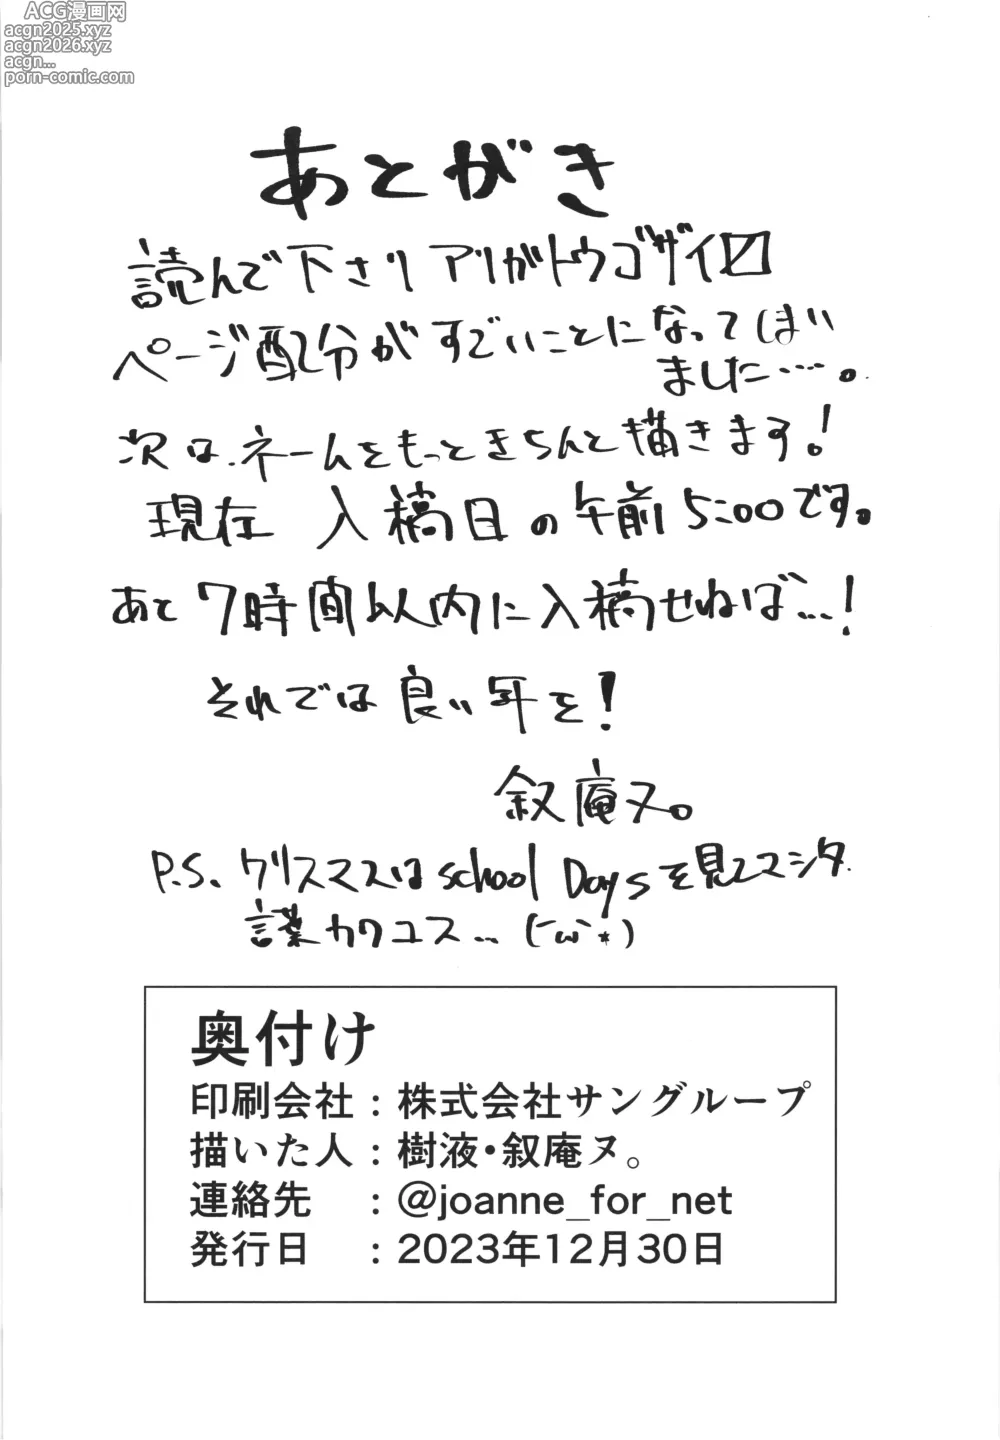 ACG漫画网
acgn2025.xyz
acgn2026.xyz
acgn...
porn-comic.com
あとがき
読んで下さり アリがトウゴザイ〼
ページ配分がすごいことになってしまい
ました…。
次は、ネームをもっときちんと描きます!
現在 入稿日の午前5:00です。
あと7時間以内に入稿せねば…!
それでは良い年を!
叙庵ヌ。
P.S. クリスマスはSchool Daysを見てマシタ
言葉カワユス… (´ω`*)
奥付け
印刷会社:株式会社サングループ
描いた人:樹液・叙庵ヌ。
連絡先 :@joanne_for_net
発行日 :2023年12月30日